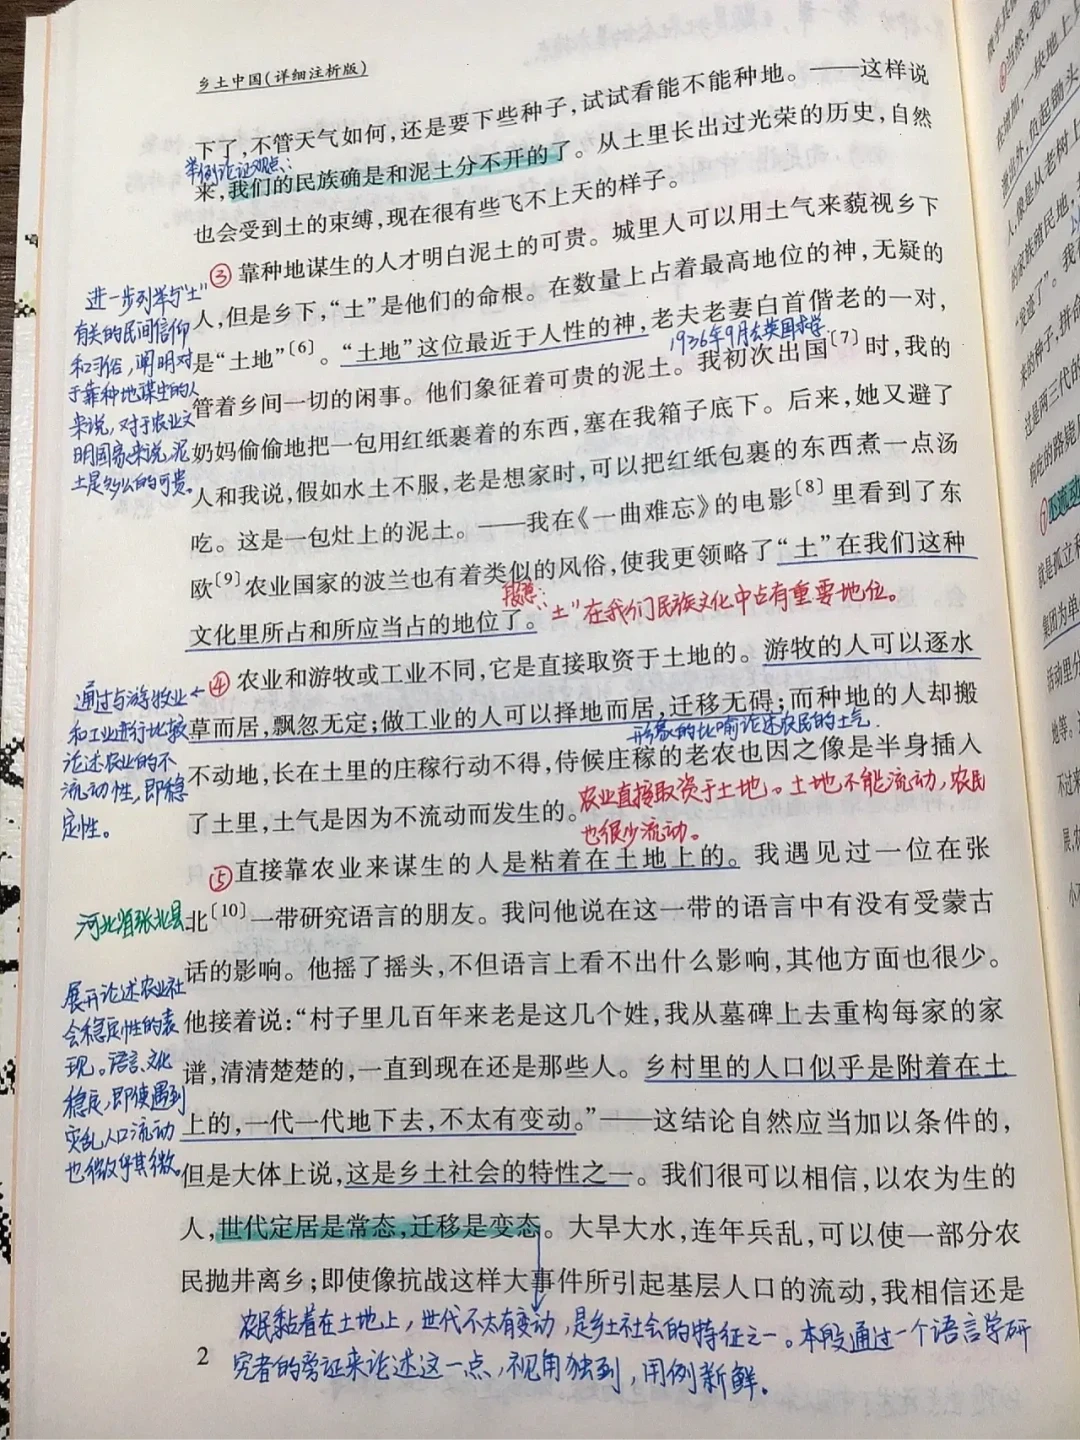 乡土中国(详细注析版)
下了，不管天气如何，还是要下些种子，试试看能不能种地。——这样说
举例论证观点：
来，我们的民族确是和泥土分不开的了。从土里长出过光荣的历史，自然
也会受到土的束缚，现在很有些飞不上天的样子。
③ 靠种地谋生的人才明白泥土的可贵。城里人可以用土气来藐视乡下
人，但是乡下，“土”是他们的命根。在数量上占着最高地位的神，无疑的
是“土地”[6]。“土地”这位最近于人性的神，老夫老妻白首偕老的一对，
1936年9月去英国求学
管着乡间一切的闲事。他们象征着可贵的泥土。我初次出国[7]时，我的
奶妈偷偷地把一包用红纸裹着的东西，塞在我箱子底下。后来，她又避了
人和我说，假如水土不服，老是想家时，可以把红纸包裹的东西煮一点汤
吃。这是一包灶上的泥土。——我在《一曲难忘》的电影[8]里看到了东
欧[9]农业国家的波兰也有着类似的风俗，使我更领略了“土”在我们这种
文化里所占和所应当占的地位了。
段意：“土”在我们民族文化中占有重要地位。
进一步列举与“土”
有关的民间信仰
和习俗，阐明对
于靠种地谋生的人
来说，对于农业文
明国家来说，泥
土是多么的可贵。
④ 农业和游牧或工业不同，它是直接取资于土地的。游牧的人可以逐水
草而居，飘忽无定；做工业的人可以择地而居，迁移无碍；而种地的人却搬
形象的比喻论述农民的土气．
不动地，长在土里的庄稼行动不得，侍候庄稼的老农也因之像是半身插入
了土里，土气是因为不流动而发生的。
农业直接取资于土地。土地不能流动，农民
也很少流动。
通过与游牧业
和工业进行比较
论述农业的不
流动性，即稳
定性。
⑤ 直接靠农业来谋生的人是粘着在土地上的。我遇见过一位在张
河北省张北县
北[10]一带研究语言的朋友。我问他说在这一带的语言中有没有受蒙古
话的影响。他摇了摇头，不但语言上看不出什么影响，其他方面也很少。
他接着说：“村子里几百年来老是这几个姓，我从墓碑上去重构每家的家
谱，清清楚楚的，一直到现在还是那些人。乡村里的人口似乎是附着在土
上的，一代一代地下去，不太有变动。”——这结论自然应当加以条件的，
但是大体上说，这是乡土社会的特性之一。我们很可以相信，以农为生的
人，世代定居是常态，迁移是变态。大旱大水，连年兵乱，可以使一部分农
民抛井离乡；即使像抗战这样大事件所引起基层人口的流动，我相信还是
展开论述农业社
会稳定性的表
现。语言、文化
稳定，即使遇到
灾乱人口流动
也微乎其微。
农民黏着在土地上，世代不太有变动，是乡土社会的特征之一。本段通过一个语言学研
究者的旁证来论述这一点，视角独到，用例新鲜。
2